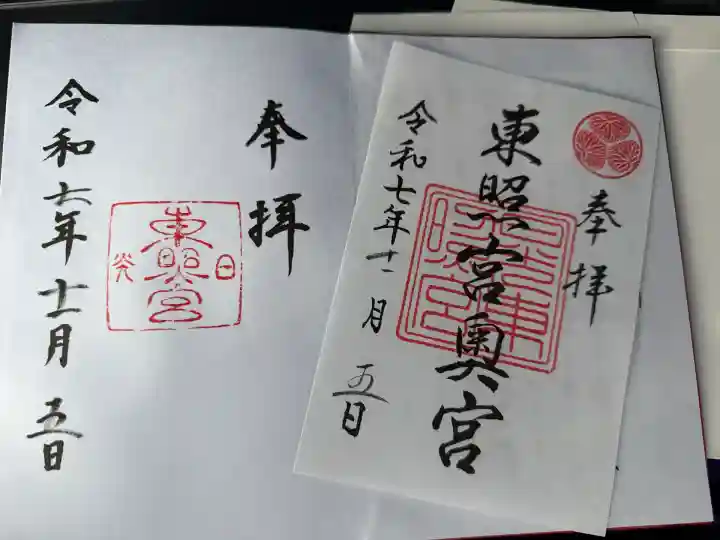 奉拝
東照宮奥宮
令和七年十一月五日
奉拝
東照宮
日光
令和六年十一月五日